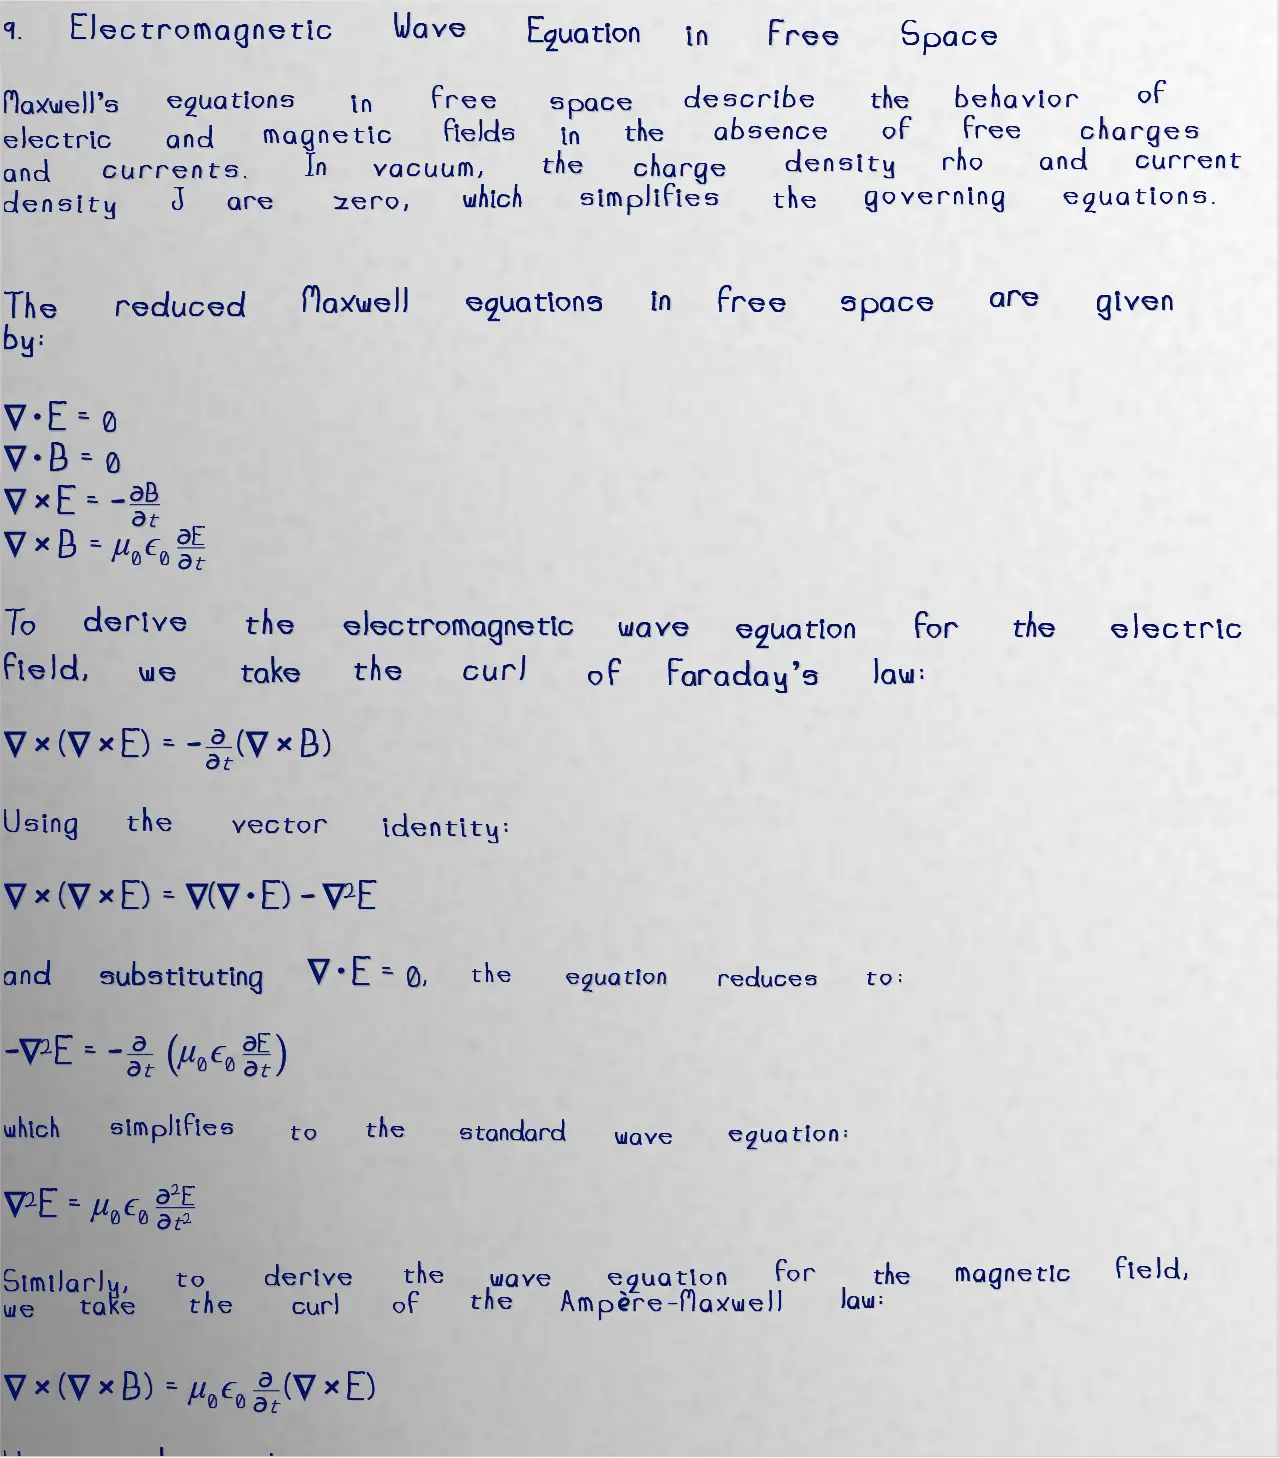 9. Electromagnetic Wave Equation in Free Space
Maxwell's equations in free space describe the behavior of
electric and magnetic fields in the absence of free charges
and currents. In vacuum, the charge density rho and current
density J are zero, which simplifies the governing equations.
The reduced Maxwell equations in free space are given
by:
∇·E = 0
∇·B = 0
∇×E = -∂B/∂t
∇×B = μ₀ϵ₀ ∂E/∂t
To derive the electromagnetic wave equation for the electric
field, we take the curl of Faraday's law:
∇×(∇×E) = -∂/∂t(∇×B)
Using the vector identity:
∇×(∇×E) = ∇(∇·E) - ∇²E
and substituting ∇·E = 0, the equation reduces to:
-∇²E = -∂/∂t (μ₀ϵ₀ ∂E/∂t)
which simplifies to the standard wave equation:
∇²E = μ₀ϵ₀ ∂²E/∂t²
Similarly, to derive the wave equation for the magnetic field,
we take the curl of the Ampère-Maxwell law:
∇×(∇×B) = μ₀ϵ₀ ∂/∂t(∇×E)